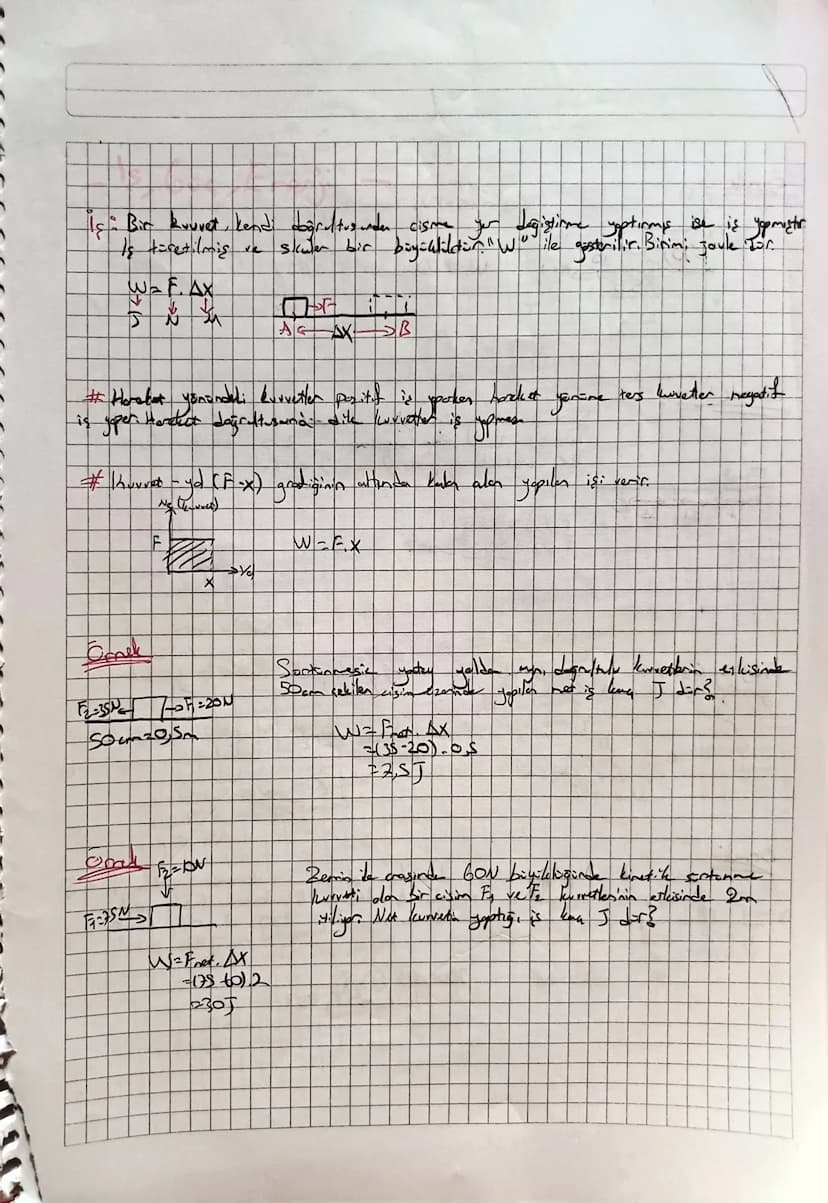 İş: Bir kuvvet, kendi doğrultusunda cisme yer değiştirme yaptırmış ise iş yapmıştır
İş türetilmiş ve skaler bir büyüklüktür. "W" ile gösterilir. Birimi joule dür.
W = F. ΔX
J N M
→F
A ← ΔX → B
# Hareket yönündeki kuvvetler pozitif iş yaparken hareket yönüne ters kuvvetler negatif
iş yapar. Hareket doğrultusuna dik kuvvetler iş yapmaz
# Kuvvet - yol (F-x) grafiğinin altında kalan alan yapılan işi verir.
(kuvvet)
F
W = F.X
X
Yol
Örnek
Sürtünmesiz yatay yolda aynı doğrultulu kuvvetlerin etkisinde
50cm çekilen cisim üzerinde yapılan net iş kaç J dür?
F2=35N
F1=20N
50cm=0,5m
W = Fnet. ΔX
=(35-20).0,5
=7,5J
Örnek
F2=10N
Zemin ile arasında 60N büyüklüğünde kinetik sürtünme
kuvveti olan bir cisim F1 ve F2 kuvvetleri'nin etkisinde 2m
Net kuvvetin yaptığı iş kaç J dür?
F1=75N
W=Fnet. ΔX
=(75-60).2
=30J